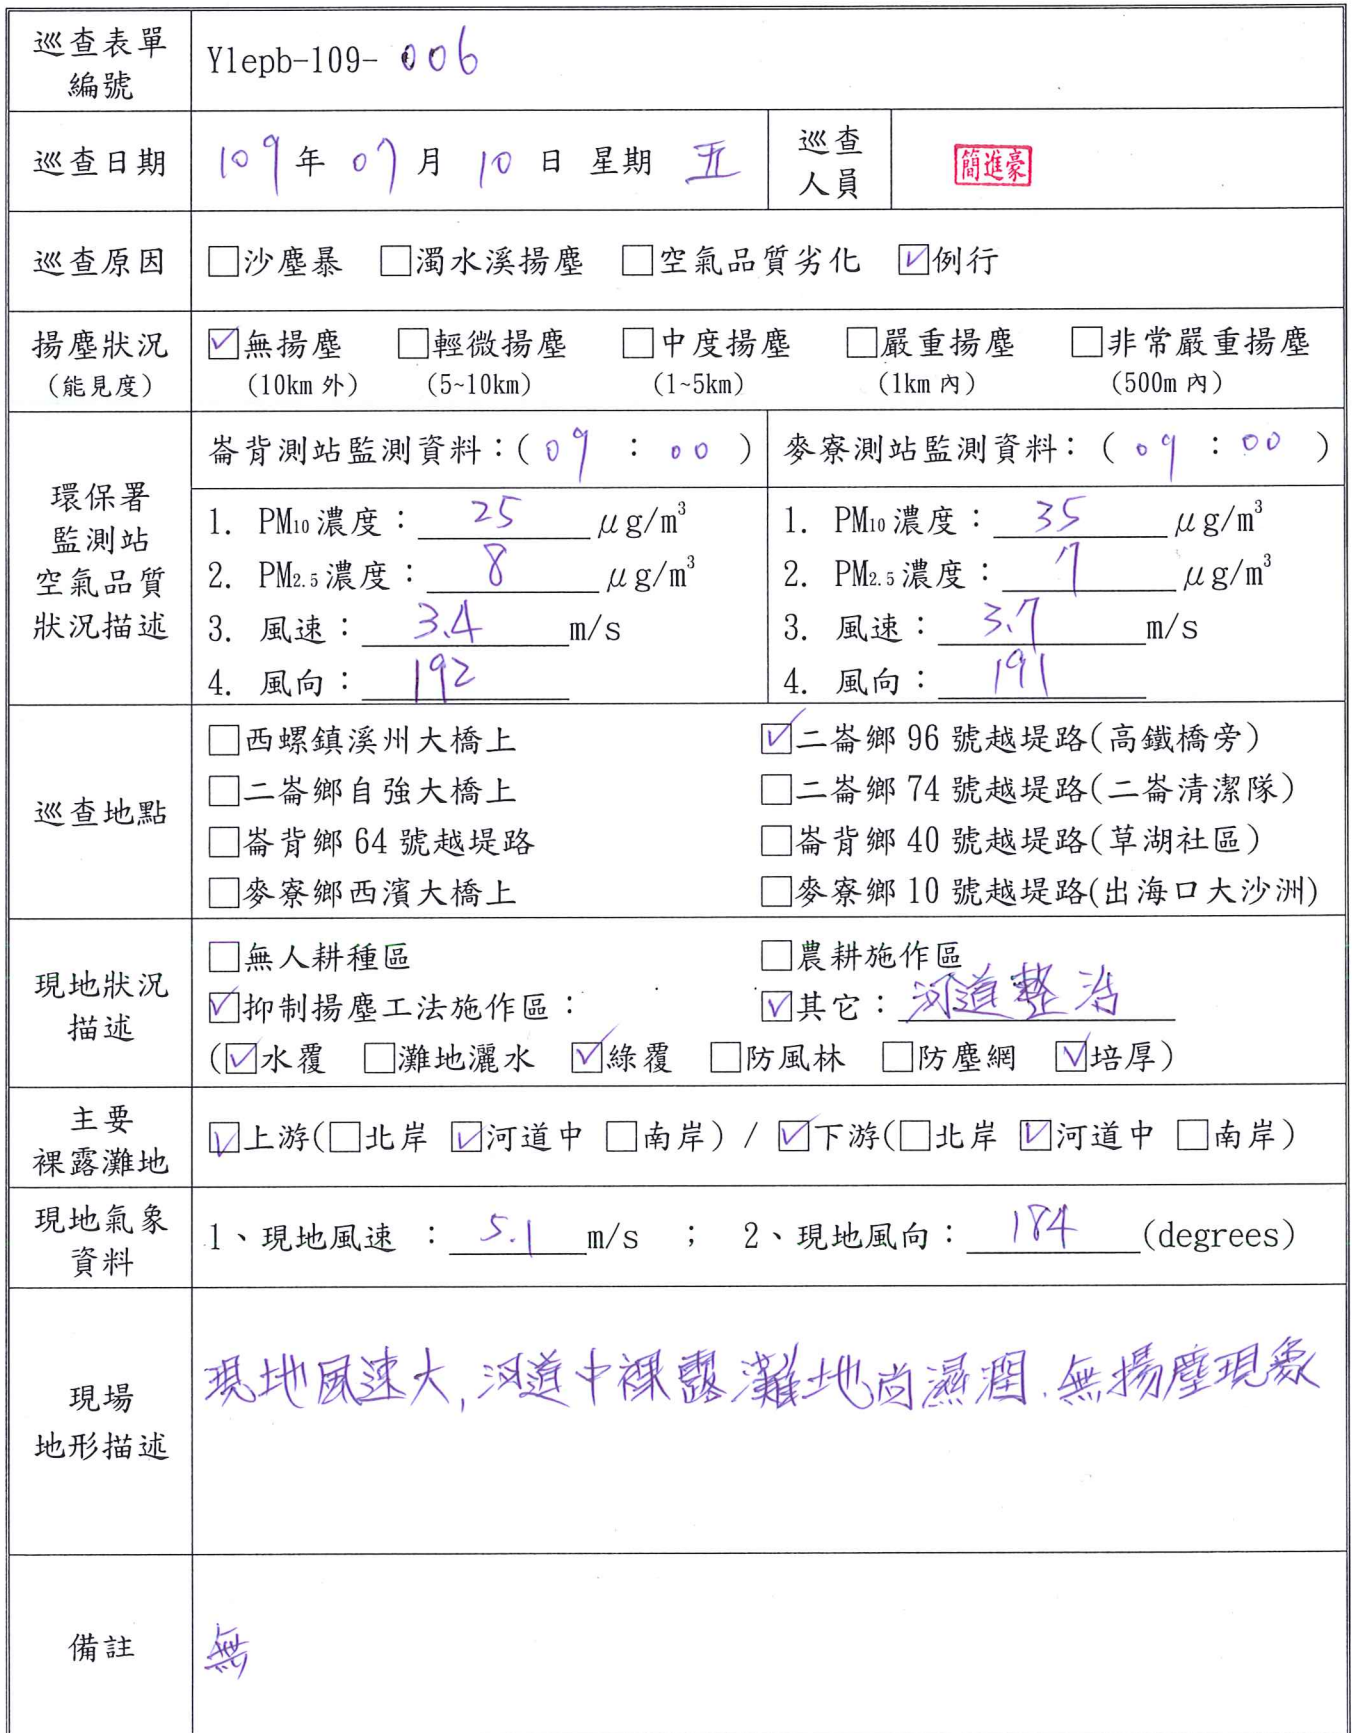 巡查表單
編號
Ylepb-109-006
巡查日期
109年 07月 10日 星期 五
巡查
人員
簡進豪
巡查原因
□沙塵暴 □濁水溪揚塵 □空氣品質劣化 ☑例行
揚塵狀況
(能見度)
☑無揚塵 □輕微揚塵 □中度揚塵 □嚴重揚塵 □非常嚴重揚塵
(10km 外) (5~10km) (1~5km) (1km 內) (500m 內)
環保署
監測站
空氣品質
狀況描述
崙背測站監測資料：(09 : 00)
1. PM10濃度：25 μg/m³
2. PM2.5濃度：8 μg/m³
3. 風速：3.4 m/s
4. 風向：192
麥寮測站監測資料：(09 : 00)
1. PM10濃度：35 μg/m³
2. PM2.5濃度：7 μg/m³
3. 風速：3.7 m/s
4. 風向：191
巡查地點
□西螺鎮溪州大橋上 ☑二崙鄉 96 號越堤路(高鐵橋旁)
□二崙鄉自強大橋上 □二崙鄉 74 號越堤路(二崙清潔隊)
□崙背鄉 64 號越堤路 □崙背鄉 40 號越堤路(草湖社區)
□麥寮鄉西濱大橋上 □麥寮鄉 10 號越堤路(出海口大沙洲)
現地狀況
描述
□無人耕種區 □農耕施作區
☑抑制揚塵工法施作區： ☑其它：河道整治
(☑水覆 □灘地灑水 ☑綠覆 □防風林 □防塵網 ☑培厚)
主要
裸露灘地
☑上游(□北岸 ☑河道中 □南岸) / ☑下游(□北岸 ☑河道中 □南岸)
現地氣象
資料
1、現地風速 ：5.1 m/s ； 2、現地風向：184 (degrees)
現場
地形描述
現地風速大,河道中裸露灘地尚濕潤.無揚塵現象
備註
無